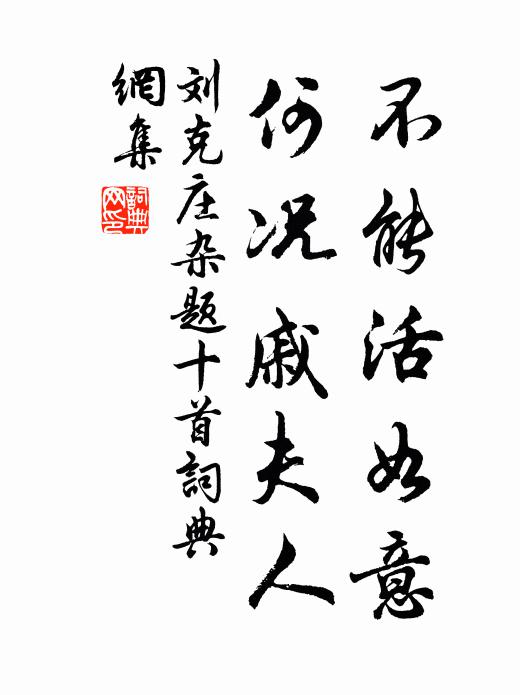 不能活如意
何况戚夫人
刘克庄杂题十首詞典
網集
詞典網印